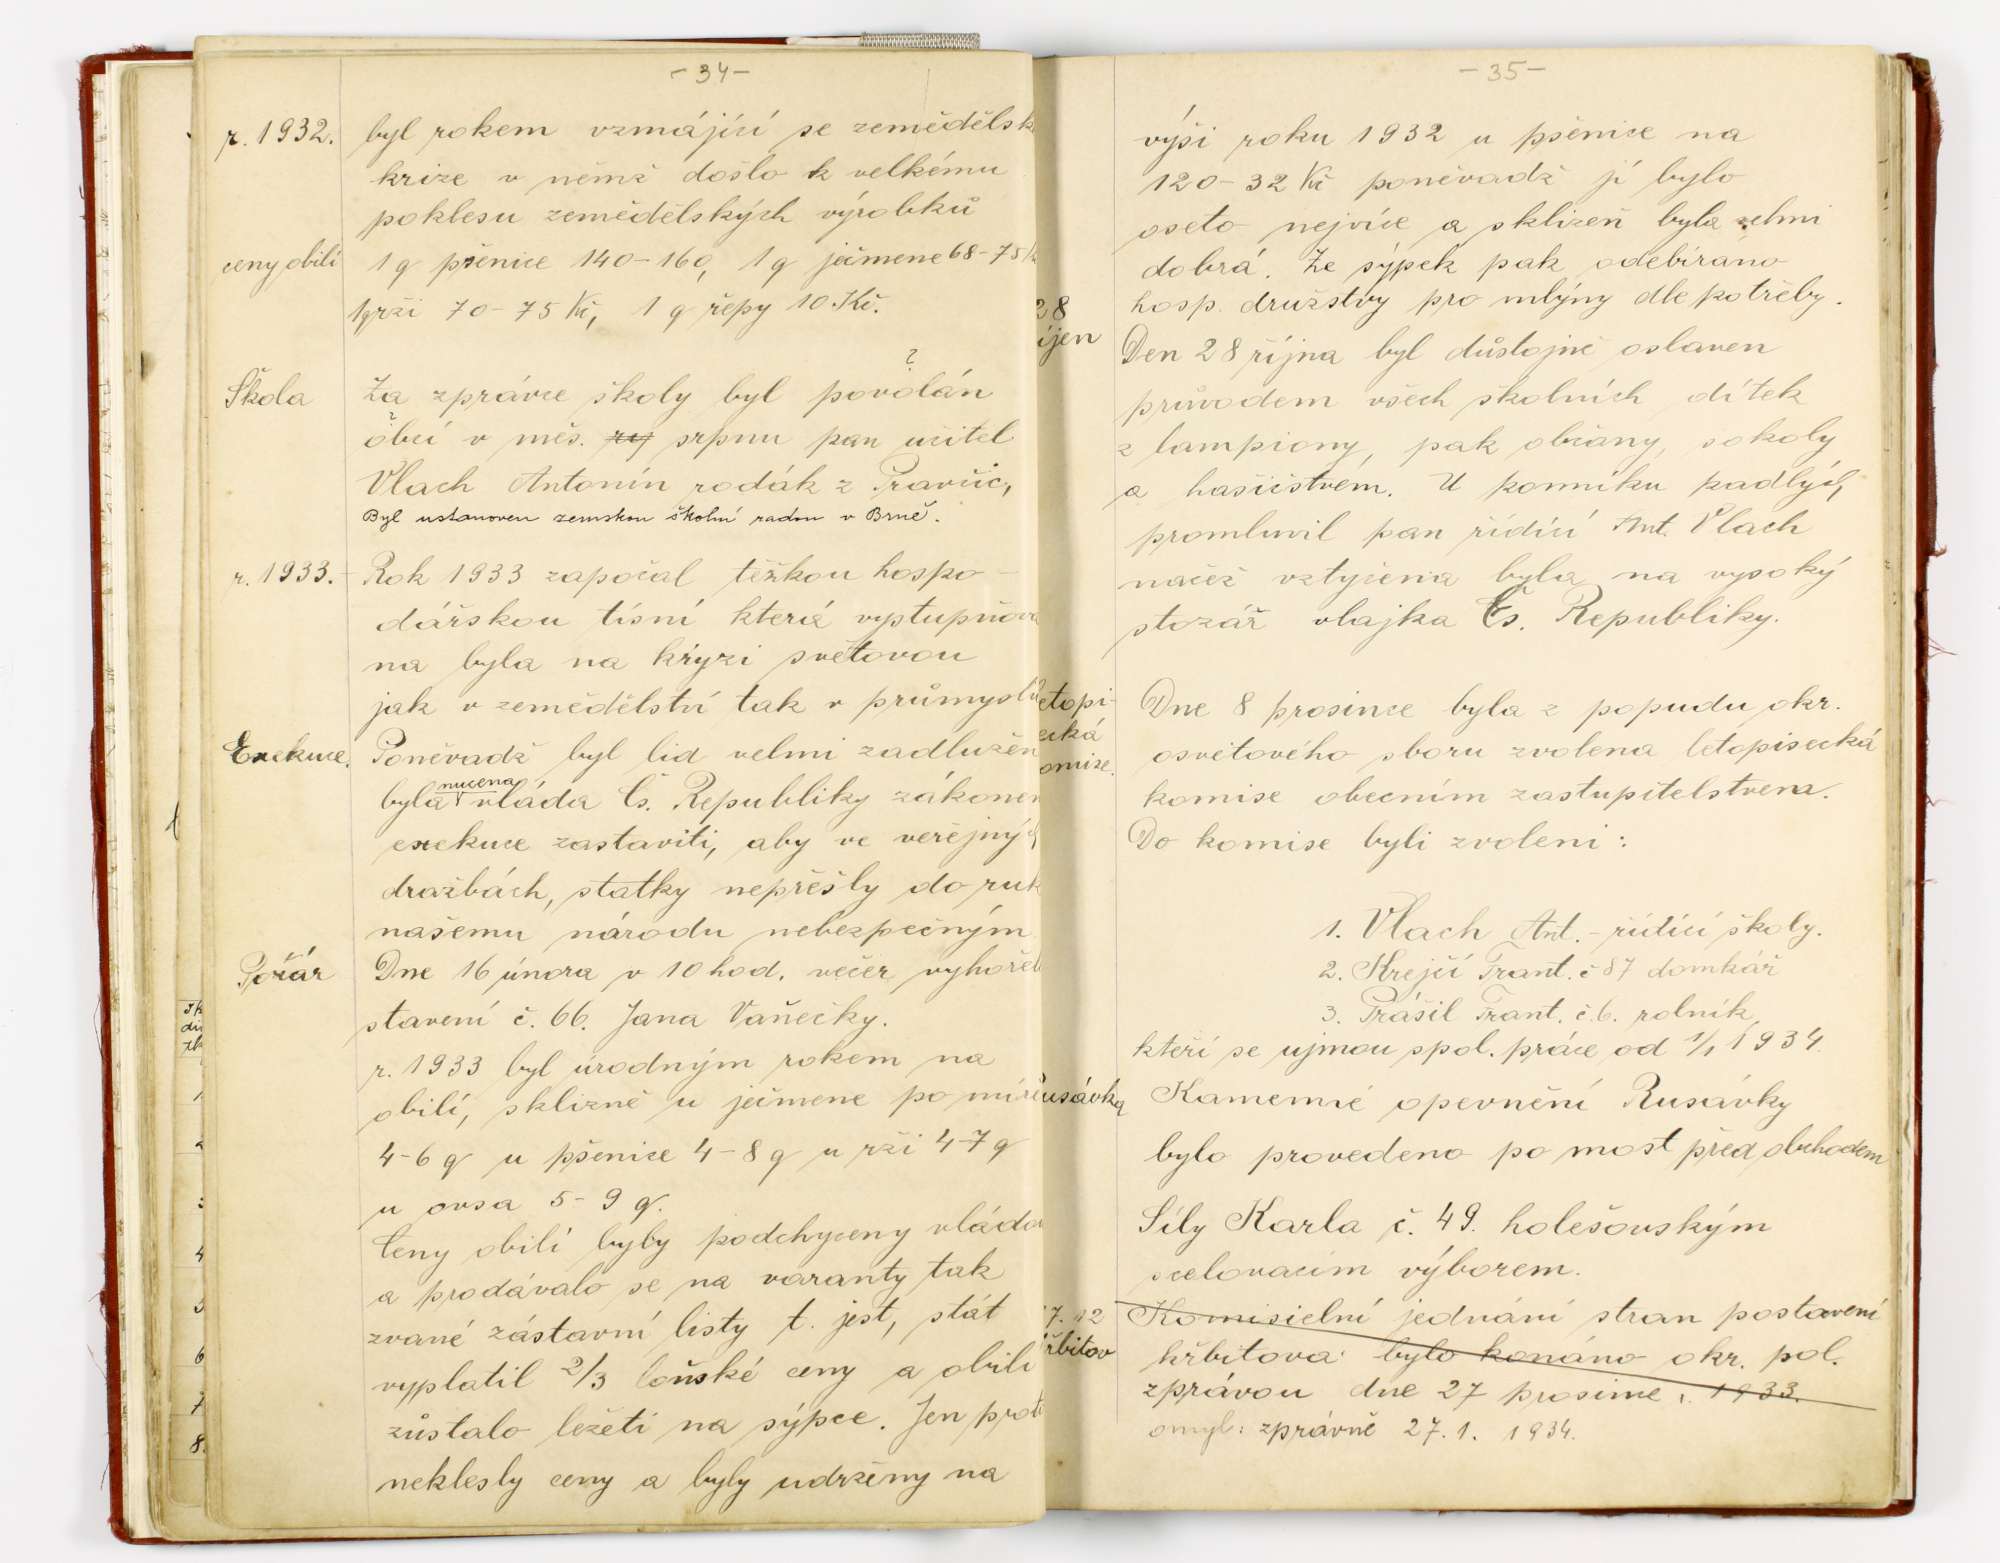 - 34 -
r. 1932. byl rokem vzmájící se zemědělsk
krize v němž došlo k velkému
poklesu zemědělských výrobků
ceny obilí 1 q pšenice 140-160, 1 q ječmene 68-75 k
1q rži 70-75 Kč, 1 q řepy 10 Kč.
?
Škola Za zprávce školy byl povolán
?
obcí v měs. srpnu pan učitel
Vlach Antonín rodák z Pravčic,
Byl ustanoven zemskou školní radou v Brně.
r. 1933. - Rok 1933 započal těžkou hospo-
dářskou tísní která vystupňova
na byla na kryzi světovou
jak v zemědělství tak v průmyslu
Exekuce. Poněvadž byl lid velmi zadlužen
nucena
byla vláda Čs. Republiky zákonem
exekuce zastaviti, aby ve veřejných
dražbách, statky nepřešly do ruk
našemu národu nebezpečným
Požár Dne 16 února v 10 hod. večer vyhořel
stavení č. 66. Jana Vaňečky.
r. 1933 byl úrodným rokem na
obilí, sklizně u ječmene po míře
4-6 q u pšenice 4-8 q u rži 4-7 q
u ovsa 5-9 q.
Ceny obilí byly podchyceny vládou
a prodávalo se na varanty tak
zvané zástavní listy t. jest, stát
vyplatil 2/3 loňské ceny a obilí
zůstalo ležeti na sýpce. Jen proto
neklesly ceny a byly udrženy na
- 35 -
výši roku 1932 u pšenice na
120-32 Kč poněvadž jí bylo
oseto nejvíce a sklizeň byla velmi
dobrá. Ze sýpek pak odebíráno
hosp. družstvy pro mlýny dle potřeby.
28
íjen
Den 28 října byl důstojně oslaven
průvodem všech školních dítek
z lampiony, pak občany, sokoly
a hasičstvem. U pomníku padlých
promluvil pan řídící Ant. Vlach
načež vztyčena byla na vysoký
stožár vlajka Čs. Republiky.
etopi-
ecká
omise.
Dne 8 prosince byla z popudu okr.
osvětového sboru zvolena letopisecká
komise obecním zastupitelstvem.
Do komise byli zvoleni:
1. Vlach Ant. - řídící školy.
2. Krejčí Frant. č 87 domkář
3. Prášil Frant. č. 6. rolník,
kteří se ujmou spol. práce od 1/1 1934.
usávka Kamenné opevnění Rusávky
bylo provedeno po most před obchodem
Síly Karla č. 49. holešovským
scelovacím výborem.
7. 12
řbitov
Komisielní jednání stran postavení
hřbitova bylo konáno okr. pol.
zprávou dne 27 prosince. 1933.
omyl: zprávně 27. 1. 1934.